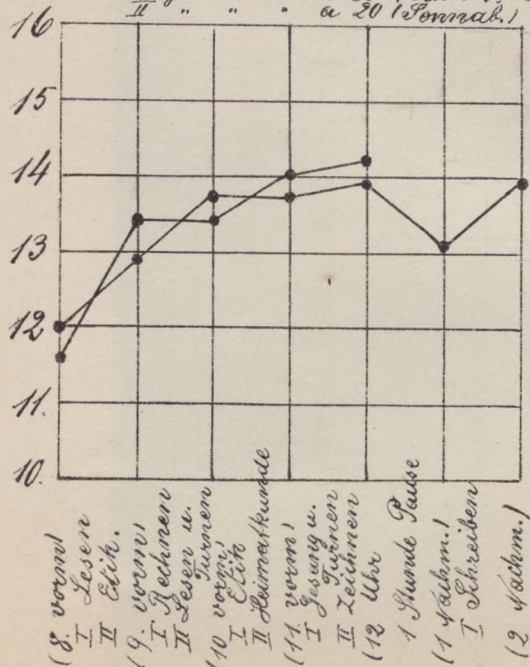 II " " " a 20 (Sonnab.)
16
15
14
13
12
11.
10.
(8. vorm!
I Lesen
II Etik.
(9. vorm!
I Rechnen
II Lesen u.
Turnen
(10 vorm!
I Etik
II Heimatkunde
(11. vorm!
I Gesang u.
Turnen
II Zeichnen
(12 Uhr
1 Stunde Pause
(1 Nachm.!
I Schreiben
(2 Nachm!